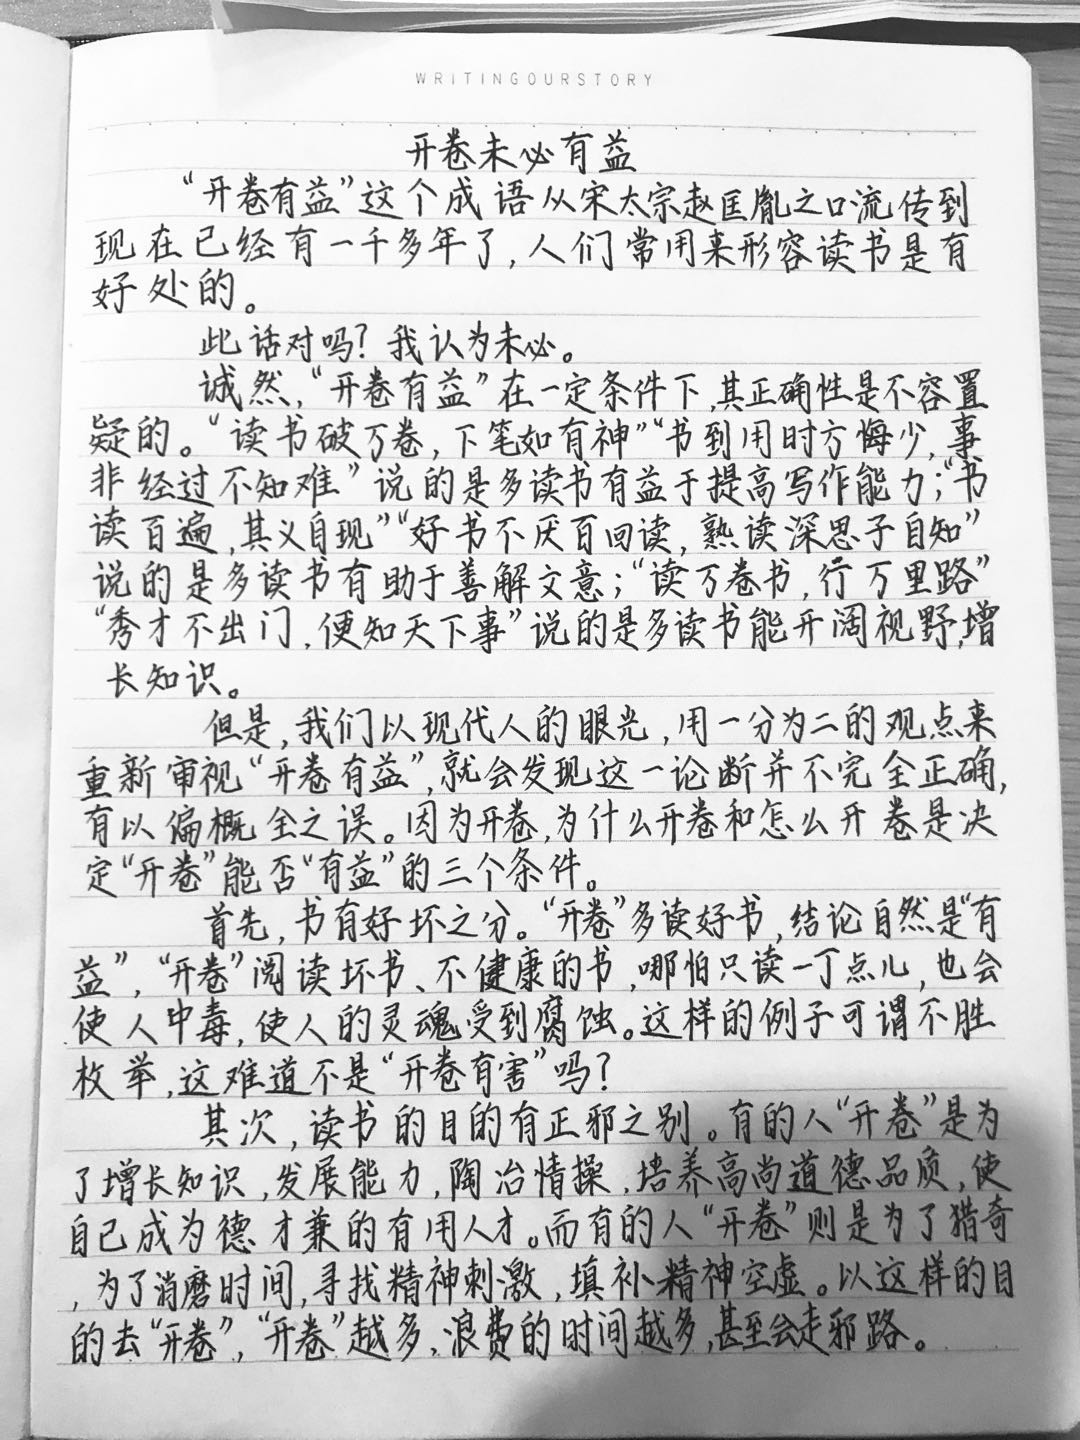 WRITINGOURSTORY
开卷未必有益
“开卷有益”这个成语从宋太宗赵匡胤之口流传到
现在已经有一千多年了,人们常用来形容读书是有
好处的。
此话对吗?我认为未必。
诚然,“开卷有益”在一定条件下,其正确性是不容置
疑的。“读书破万卷,下笔如有神”“书到用时方悔少,事
非经过不知难”说的是多读书有益于提高写作能力;“书
读百遍,其义自现”“好书不厌百回读,熟读深思子自知”
说的是多读书有助于善解文意;“读万卷书,行万里路”
“秀才不出门,便知天下事”说的是多读书能开阔视野,增
长知识。
但是,我们以现代人的眼光,用一分为二的观点来
重新审视“开卷有益”,就会发现这一论断并不完全正确,
有以偏概全之误。因为开卷,为什么开卷和怎么开卷是决
定“开卷”能否“有益”的三个条件。
首先,书有好坏之分。“开卷”多读好书,结论自然是“有
益”,“开卷”阅读坏书、不健康的书,哪怕只读一丁点儿,也会
使人中毒,使人的灵魂受到腐蚀。这样的例子可谓不胜
枚举,这难道不是“开卷有害”吗?
其次,读书的目的有正邪之别。有的人“开卷”是为
了增长知识,发展能力,陶冶情操,培养高尚道德品质,使
自己成为德才兼的有用人才。而有的人“开卷”则是为了猎奇
,为了消磨时间,寻找精神刺激,填补精神空虚。以这样的目
的去“开卷”,“开卷”越多、浪费的时间越多,甚至会走邪路。